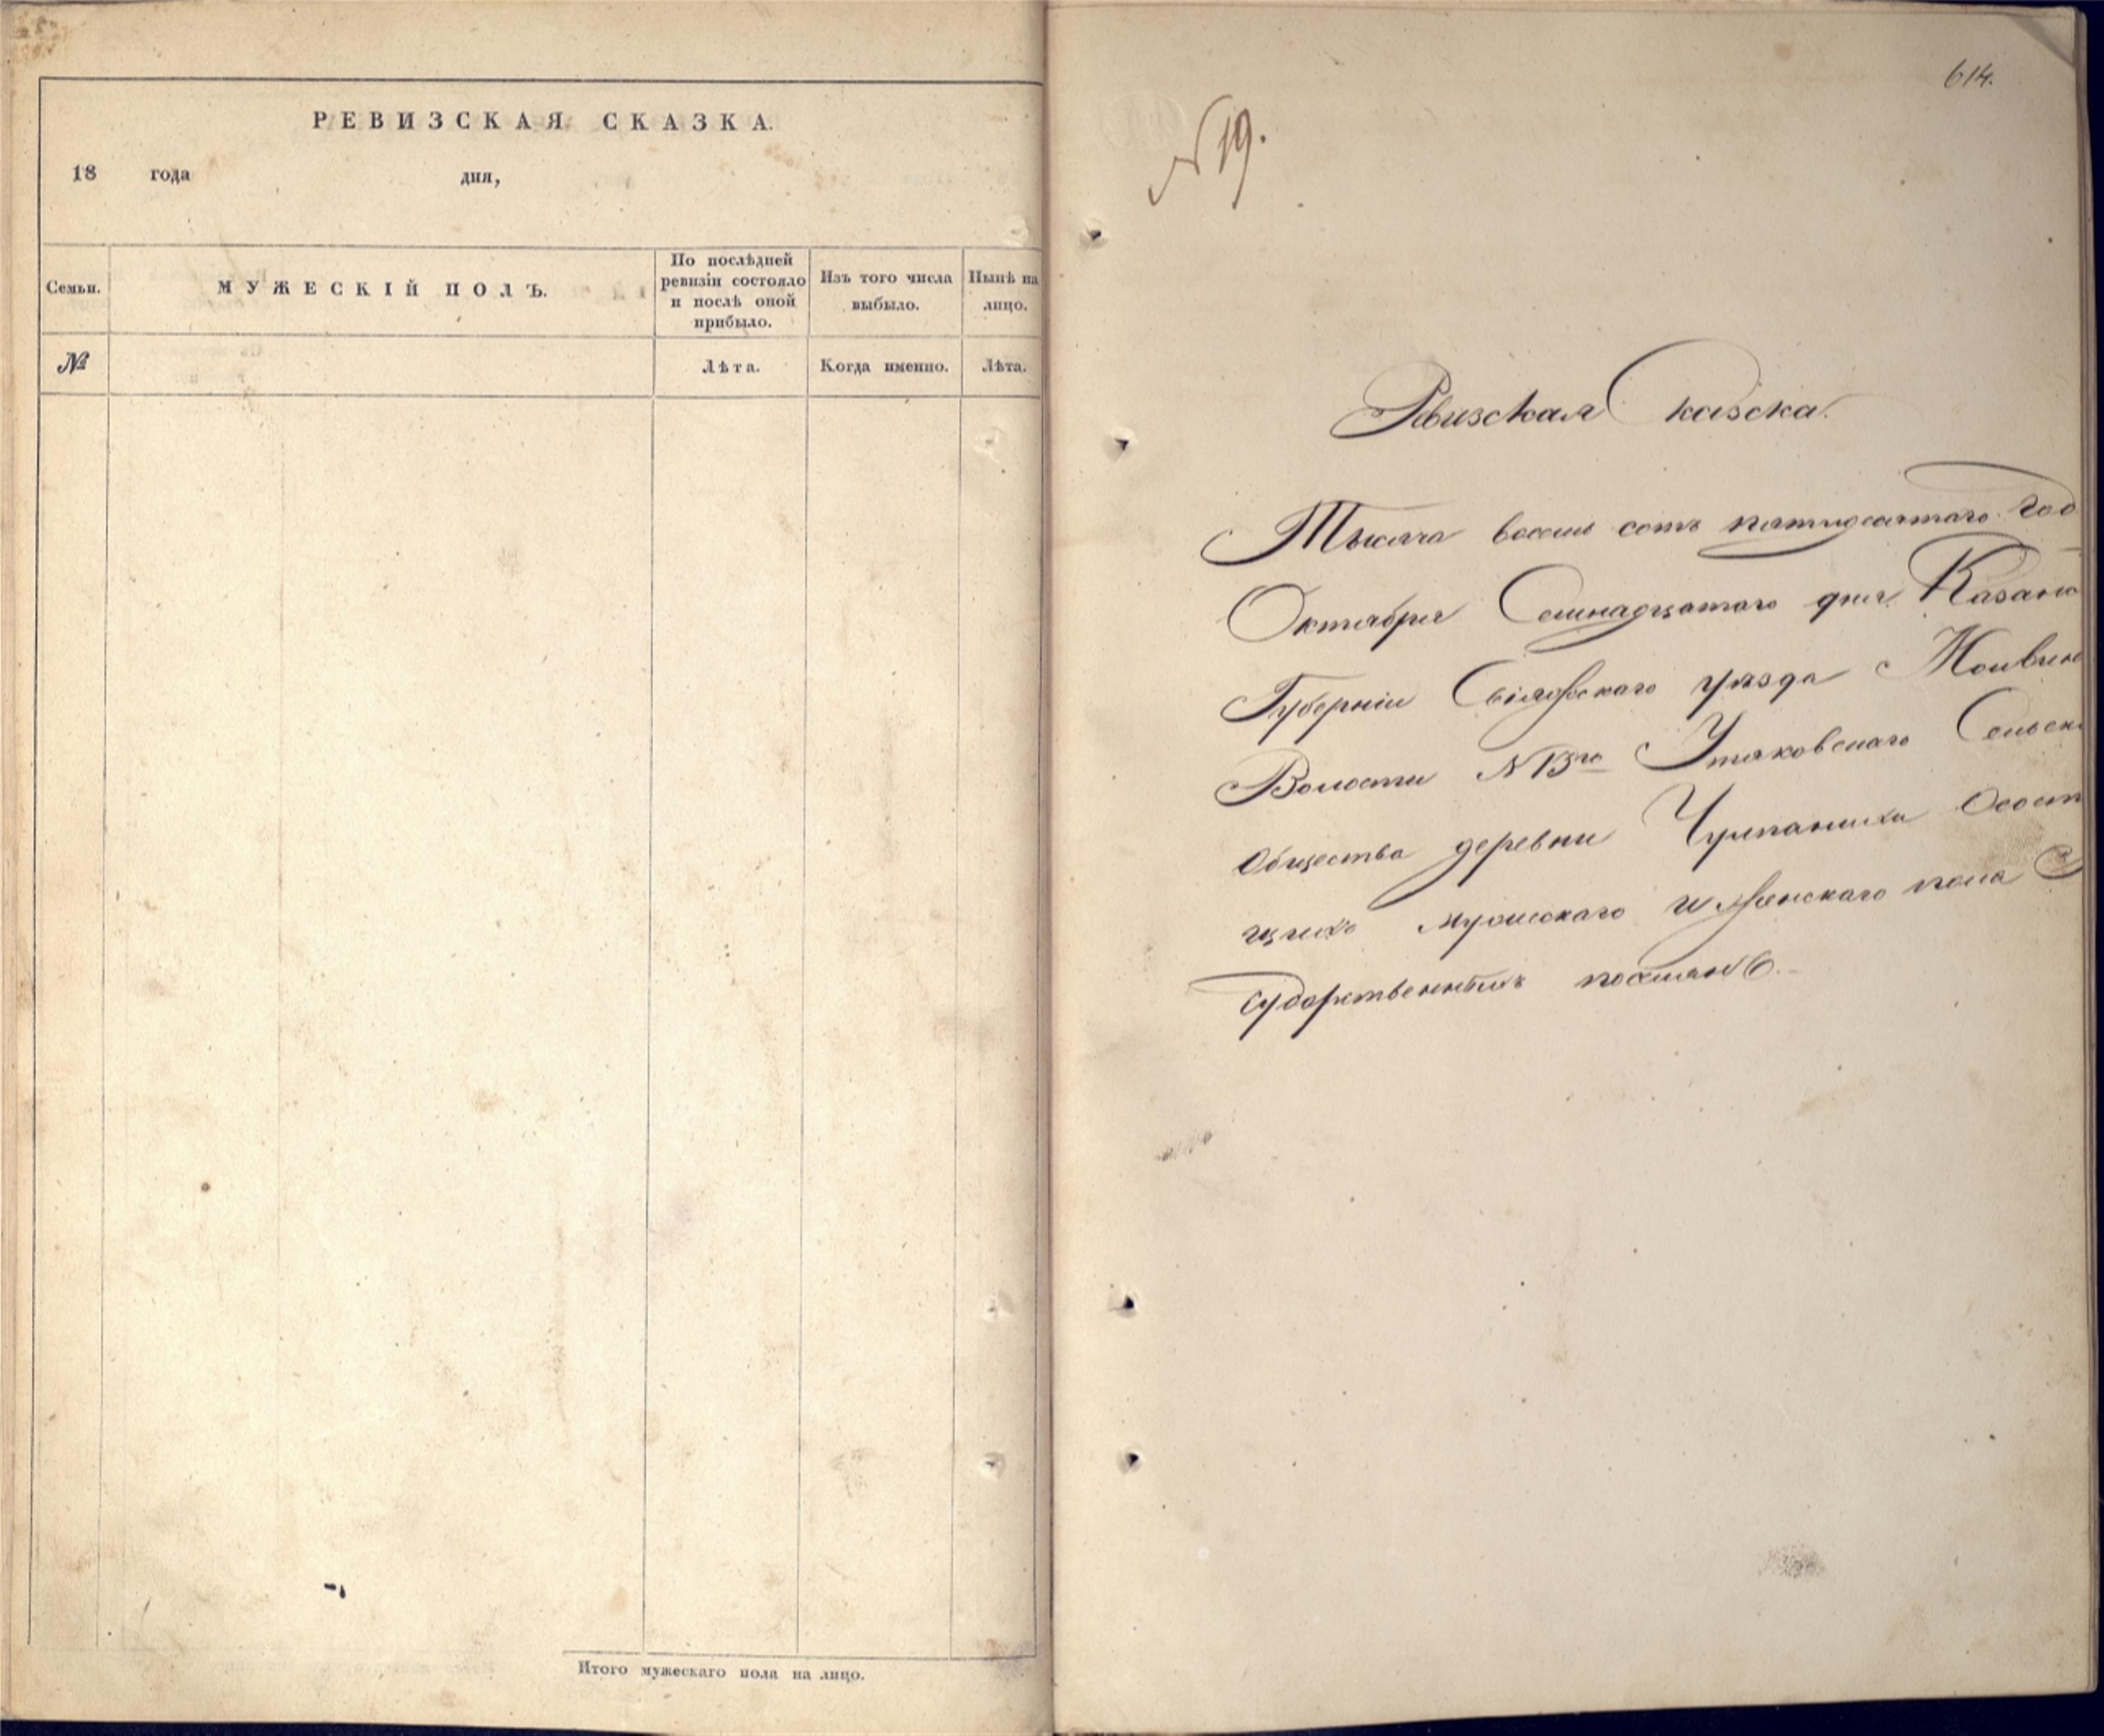 РЕВИЗСКАЯ СКАЗКА.
18 года дня,
Семьи.
МУЖЕСКІЙ ПОЛЪ.
По послѣдней
ревизіи состояло
и послѣ оной
прибыло.
Изъ того числа
выбыло.
Нынѣ на
лицо.
№
Лѣта.
Когда именно.
Лѣта.
Итого мужескаго пола на лицо.
614.
№ 19.
Ревизская Сказка.
Тысяча восемь сотъ пятидесятаго Год
Октября Семнадцатаго дня Казанс
Губерніи Свіяжскаго уѣзда
Волости № 13го Утяковскаго Сельск
Общества деревни Чулпанихи Осост
щихъ мужескаго и женскаго пола
сударственныхъ поселянѣ.